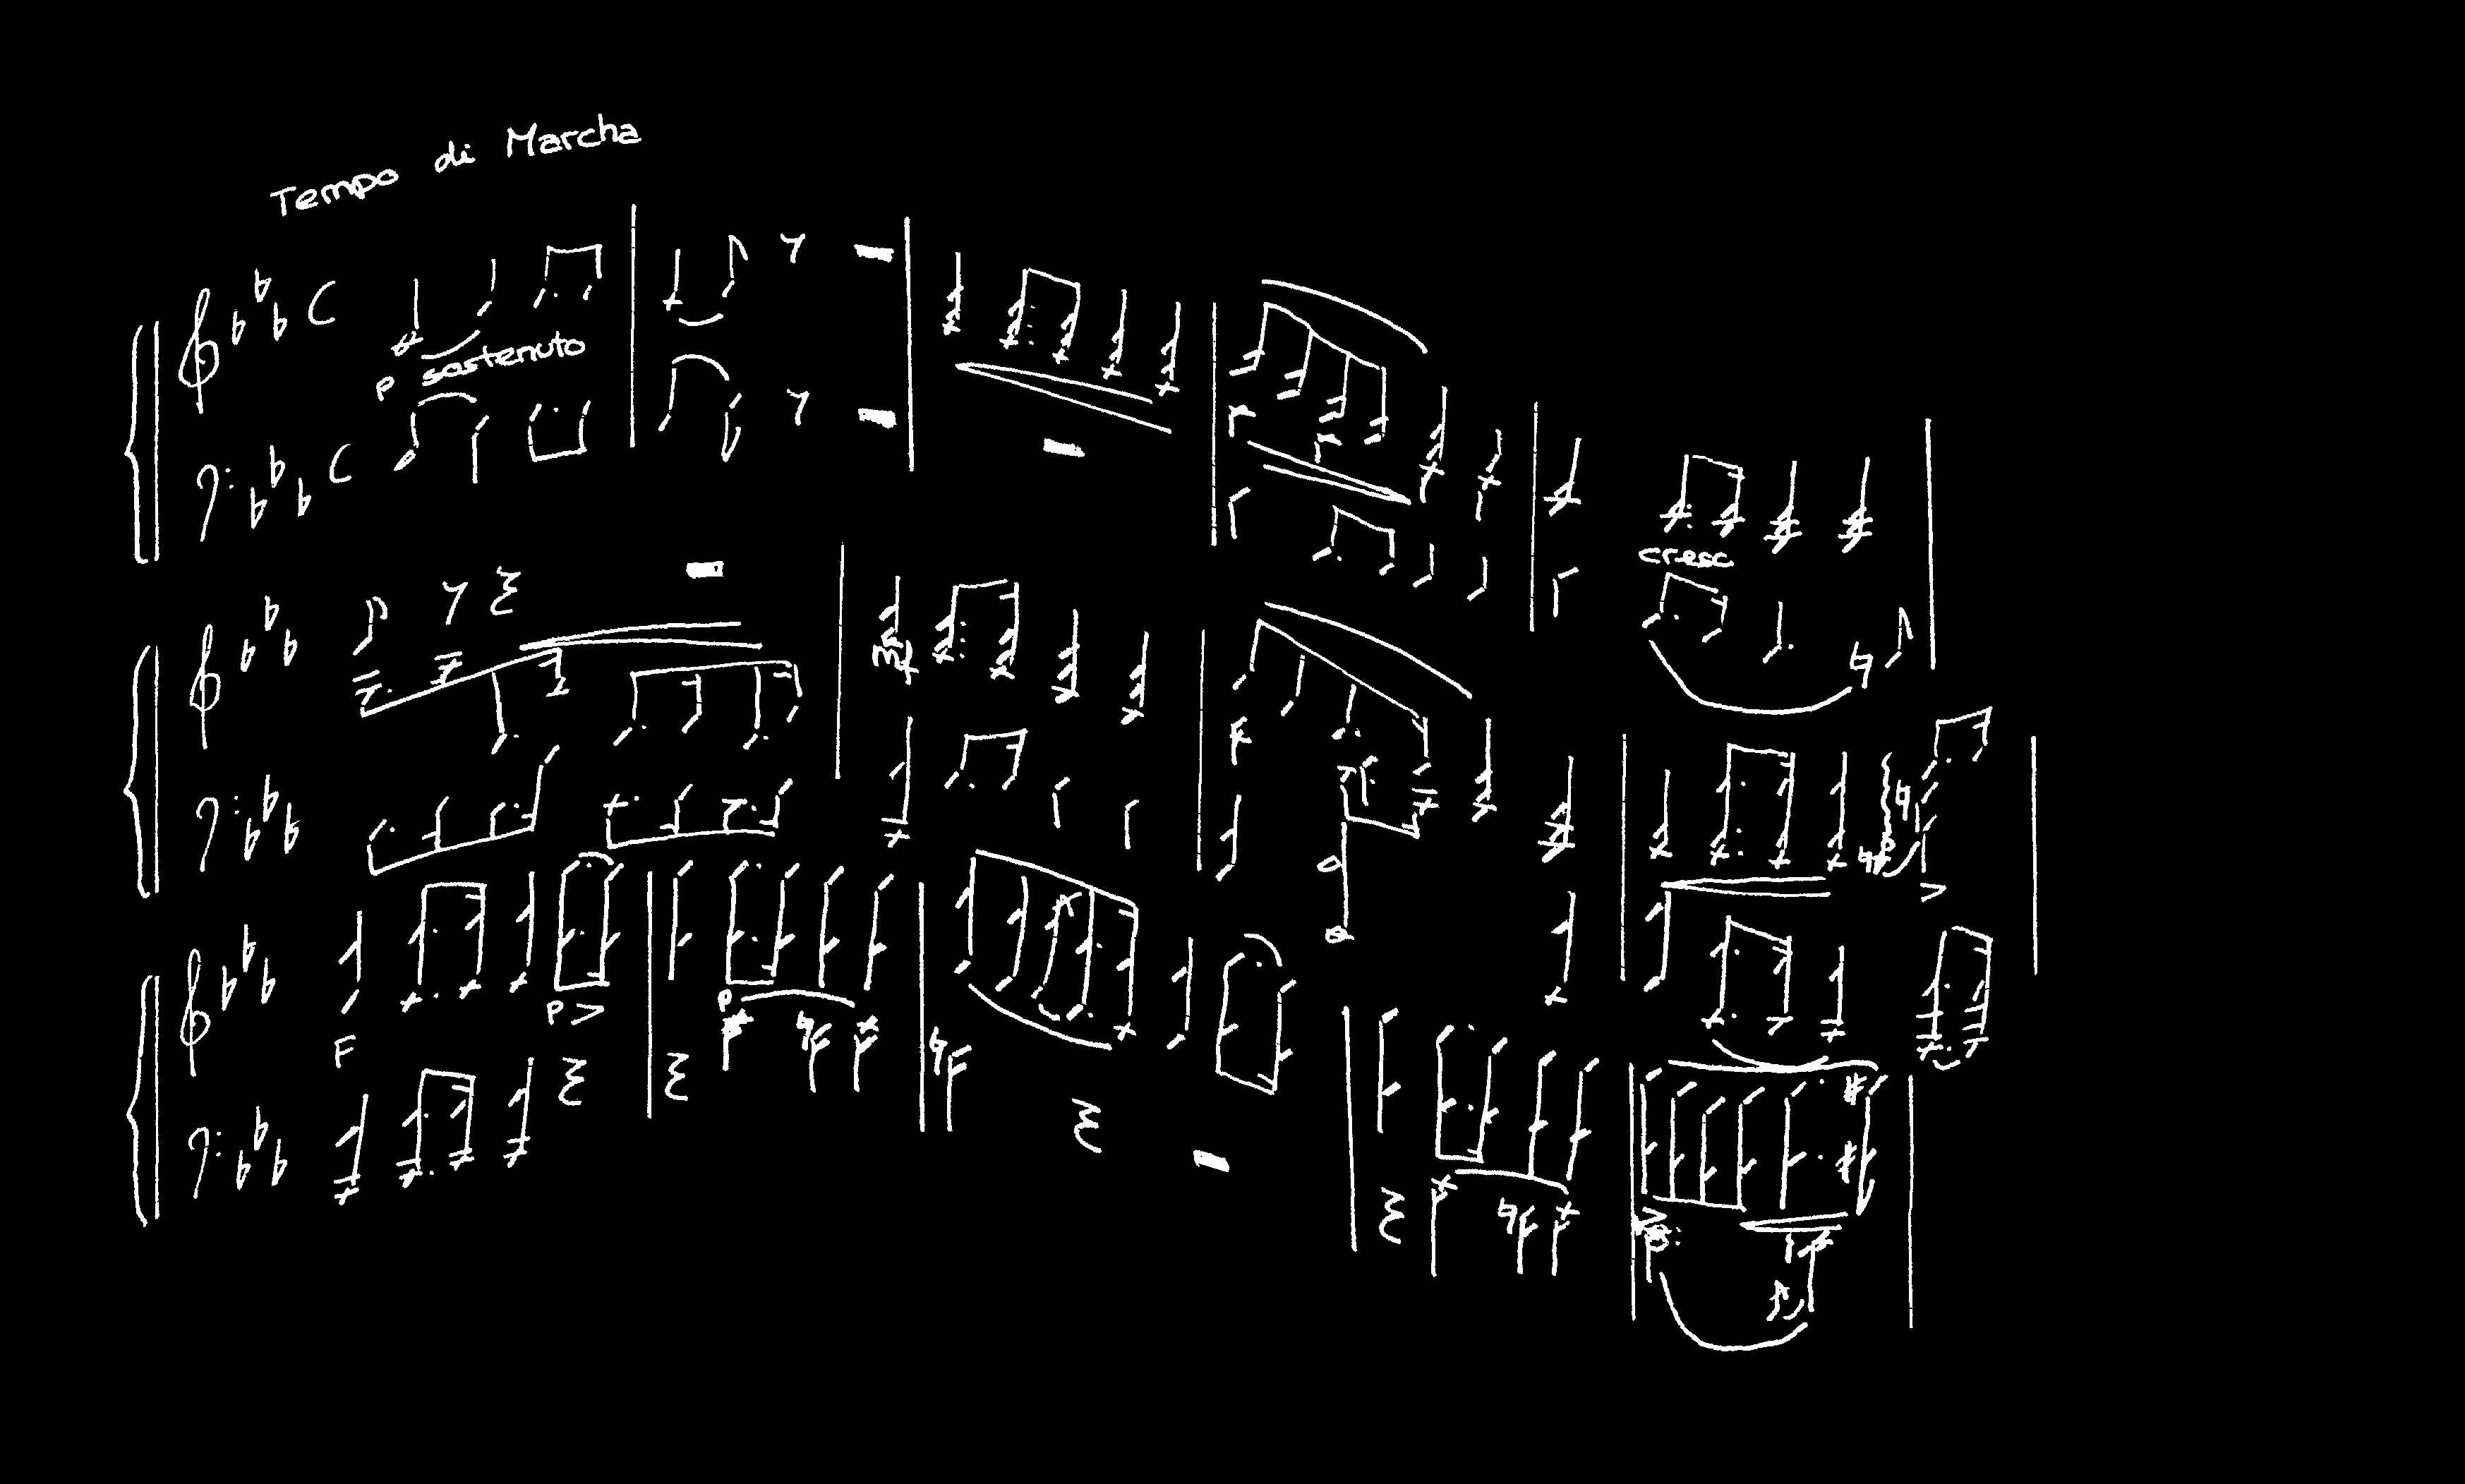 Tempo di Marcha
p sostenuto
cresc.
mf
F
p
p